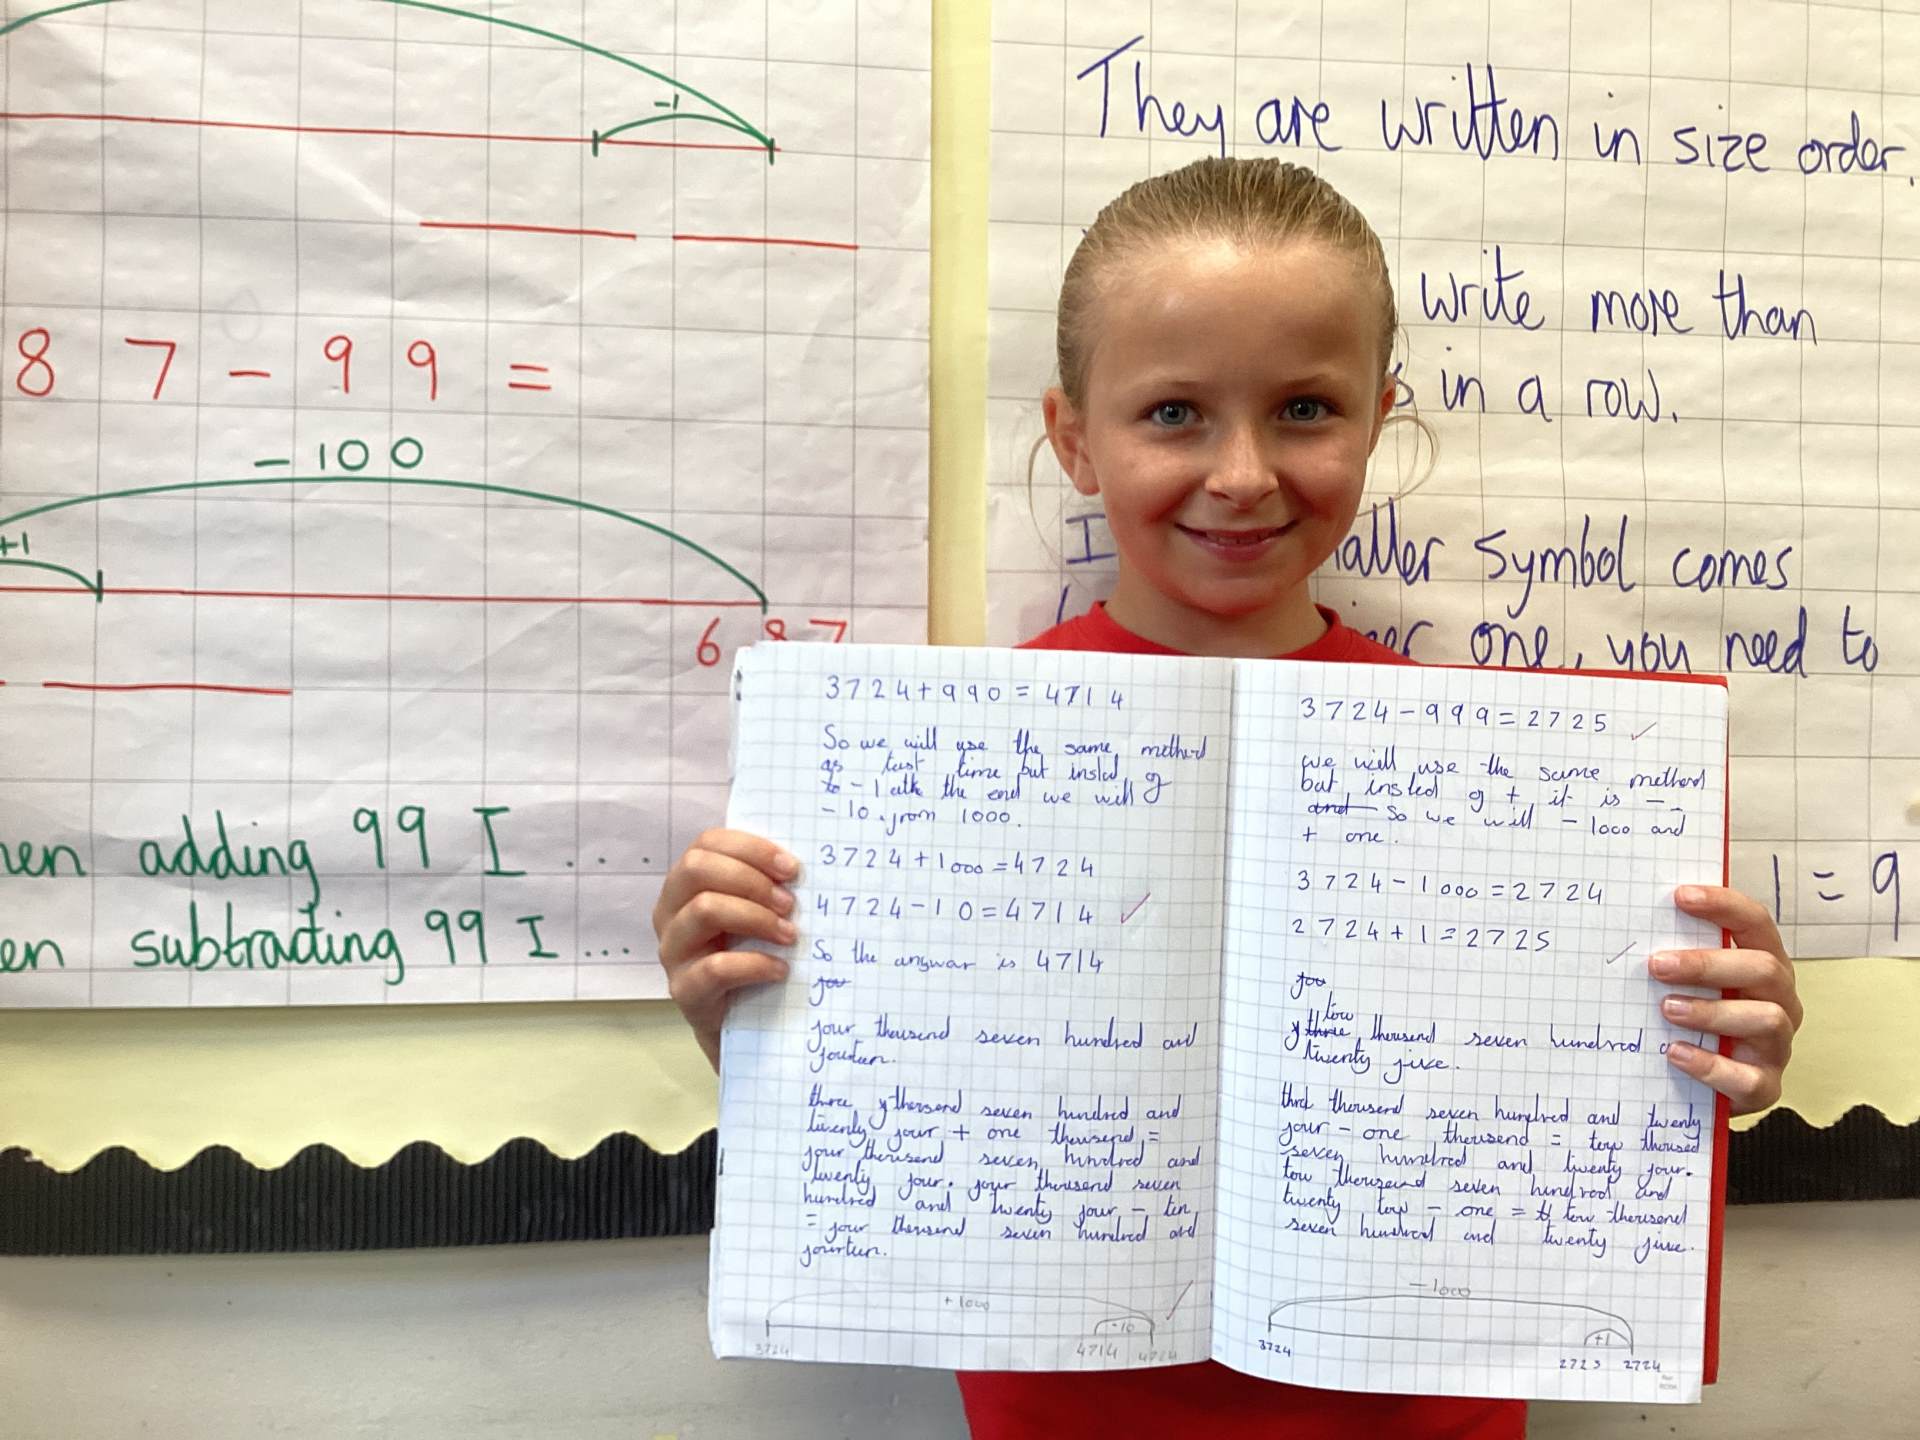 -1
8 7 - 9 9 =
- 1 0 0
+1
6 8 7
adding 99 I ....
subtracting 99 I ...
They are written in size order.
write more than
s in a row.
I
aller symbol comes
one, you need to
1 = 9
3724 + 990 = 4714
So we will use the same method
as last time but insted of
to - 1 at the end we will
- 10 from 1000.
3724 + 1000 = 4724
4724 - 10 = 4714
So the answar is 4714
four thousend seven hundred and
fourteen.
three thousend seven hundred and
twenty four + one thousend =
four thousend seven hundred and
twenty four. four thousend seven
hundred and twenty four - ten
= four thousend seven hundred and
fourteen.
+ 1000
- 10
3724 4714 4724
3724 - 999 = 2725
we will use the same method
but insted of + it is -
and So we will - 1000 and
+ one.
3724 - 1000 = 2724
2724 + 1 = 2725
tow
three thousend seven hundred
twenty five.
thousend seven hundred and twenty
four - one thousend = tow thoused
seven hundred and twenty four.
tow thousend seven hundred and
twenty tow - one = tow thousend
seven hundred and twenty five.
- 1000
+1
3724 2725 2724